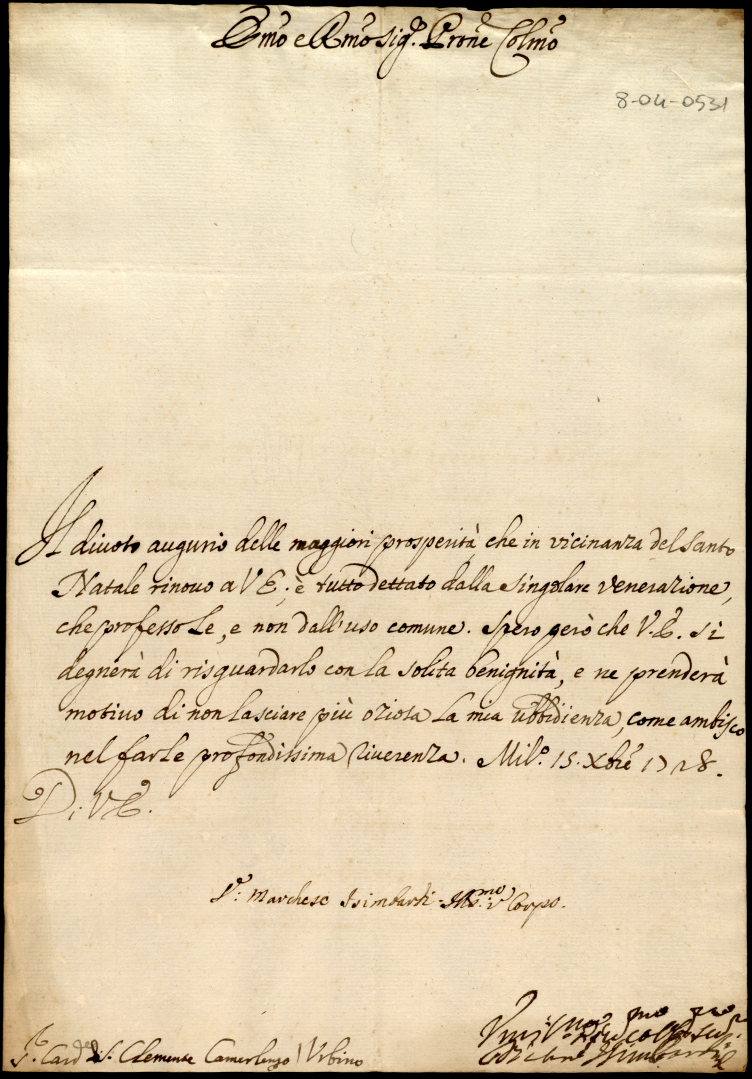 Emo e Rmo Sig.r Prone Colmo
8-04-0531
Il divoto augurio delle maggiori prosperità, che in vicinanza del Santo
Natale rinovo a V E; è tutto dettato dalla singolare venerazione,
che professo Le, e non dall'uso comune. Spero però che V. E. si
degnerà di risguardarlo con la solita benignità, e ne prenderà
motivo di non lasciare più oziosa la mia ubbidienza, come ambisco
nel farLe profondissima riverenza. Mil.o 15. Xbre 1728.
Di V E.
Marchese Isimbardi
S.r Card S. Clemente Camerlengo / Urbino
Isimbardi